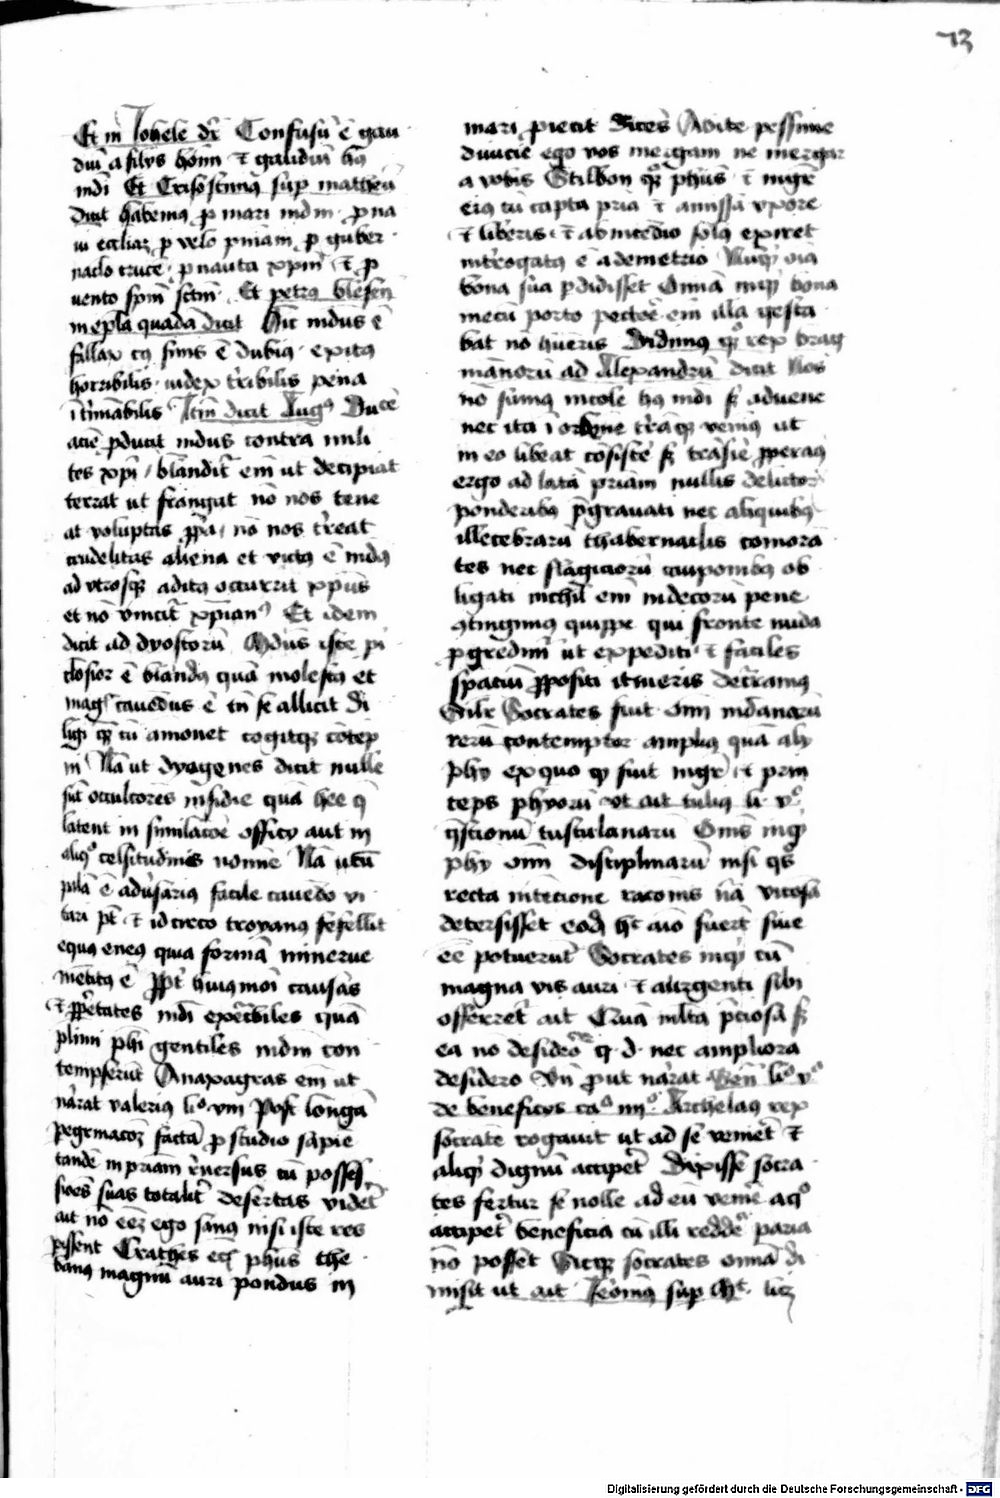 73
Et in Iohele dr̄ Confusū ē gau
diū a filys hōīm ⁊ gaudiū hꝯ
mdi Et Crisostimꝯ sup matheū
dicit habemꝯ ꝑ mari mdm ꝑ na
ui eccliaꝫ ꝑ velo pniam ꝑ guber
naclo crucē ꝑ nauta xp̄m ⁊ ꝑ
uento sp̄m sctm̄ Et petrꝯ blesen
in ep̄la quadā dicit Hic mdus ē
fallax cꝯ finis ē dubiꝯ exitꝯ
horribilis iudex tr̄ibilis pena
īt̄minabilis Itm̄ dicit Augꝯ Du cē
aciē ꝓducit mdus contra mili
tes xp̄i blandit̄ em̄ ut decipiat
terrat ut frangat nō nos tene
at voluptas ꝓp̄a nō nos t̄reat
crudelitas aliena et victꝯ ē mdꝯ
ad vtrosqꝫ aditꝯ occurrit xp̄us
et nō vincit̄ xp̄ianꝯ Et idem
dicit ad dyoscorū Mdus iste pi
closior ē blandꝯ quā molestꝯ et
magꝭ cauēdus ē cū se allicit di
ligi qꝫ cū amonet cogitqꝫ cōtep
ni Nā ut dyogenes dicit nulle
sūt occultores insidie quā hee q̄
latent in similacōe officy aut in
aliqꝯ celsitudinis nomine Nā utū
palā ē adūsariꝯ facile cauēdo vi
tari pt̄ ⁊ idcirco troyanꝯ fefellit
equꝯ eneꝯ quia formā minerue
mētitꝯ ē ꝓpt̄ huiꝯmōi causas
⁊ ꝓp̄etates mdi exēcbiles quā
plimi phi gentiles mdm con
tempserūt Anaxagras em̄ ut
nārat valeriꝯ liᵒ viii Post longā
pegrinacōꝫ factā ꝓ studio sapie
tandē in pr̄iam r̄uersus cū posses
sioēs suas totalit̄ desertas videt̄
ait nō eēꝫ ego sanꝯ nisi iste res
pissent Crathes eciꝭ phūs the
banꝯ magnū auri pondus in
mari ꝓiecit dicēs Abite pessime
diuicie ego vos mergam ne mergar
a vobis Stilbon qꝫ phūs ⁊ nigr̄
eiꝯ cū capta pr̄ia ⁊ amissa vxore
⁊ liberis ⁊ ab incedio solꝯ exiret
int̄rogatꝯ ē a demetrio Nuqꝫ oīa
bona sua ꝑdidisset Omā inqꝫ bona
mecū porto pectōe em̄ illa gesta
bat nō hūeris Didimꝯ qꝫ rex brag
mānorū ad Alexandrū dicit Nos
nō sumꝯ incole hꝯ mdi sꝫ aduene
nec ita ī orbēne t̄rāqꝫ venimꝯ ut
in eo libeat cōsiste sꝫ trāsire ꝓperaꝯ
ergo ad latā pr̄iam nullis delictor
ponderibꝯ p̄grauati nec aliquibꝯ
illecebrarū thabernaclis comora
tes nec flagiciorū cauponibꝯ ob
ligati nichil em̄ indecorū pene
ꝯtingimꝯ quippe qui fronte nuda
ꝓgredim̄ ut expediti ⁊ faciles
spaciū ꝓpositi itineris decr̄amꝯ
Silr̄ Socrates fuit oīm mdanorū
rerū contemptor ampliꝯ quā aly
phy ex quo ꝙ fuit mgr̄ ⁊ prin
ceps phyorū vt ait tuliꝯ li vᵒ
q̄stionū tusculanarū Om̄s inqꝫ
phy oīm disciplinarū nisi qꝭ
recta intēcione racōnis nā viciosa
detersisset eodꝫ hᵗ aīo fuert̄ siue
eē potuerūt Socrates inqꝫ cū
magna vis auri ⁊ argenti sibi
offerret̄ ait Quā mlta p̄ciosa sꝫ
ea nō desidero q d nec ampliora
desidero Vn̄ ꝓut nārat Sen̄ liᵒ vᵒ
de beneficys caᵒ iiiiᵒ Archelaꝯ rex
socratē rogauit ut ad se veniet̄ ⁊
aliqꝫ dignū accipet̄ Dixisse socra
tes fertur se nolle ad eū venīe aqᵒ
accipet̄ beneficia cū illi reddē paria
nō posset Sicqꝫ socrates omnā di
misit ut ait Ieronimꝯ sup Mᵗ liꝫ
Digitalisierung gefördert durch die Deutsche Forschungsgemeinschaft - DFG